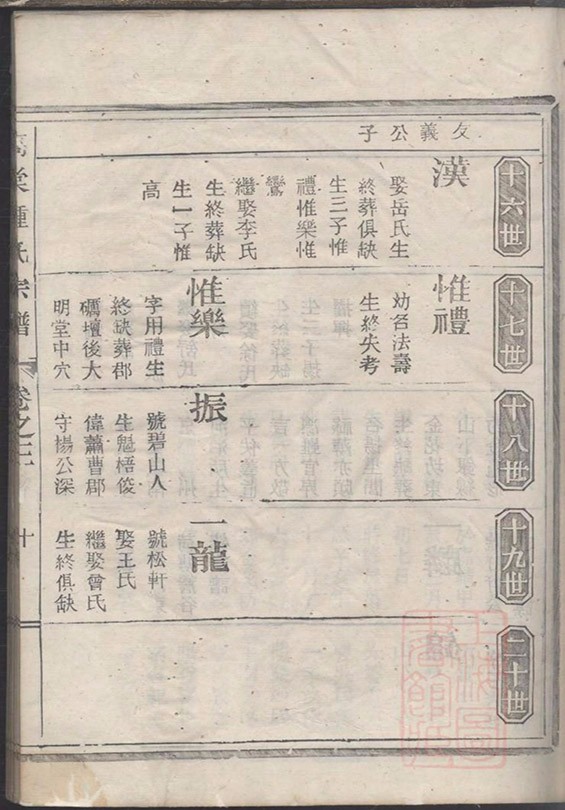 文義公子
十六世
漢
娶岳氏生
終葬俱缺
生三子惟
禮惟樂惟
鸞
繼娶李氏
生終葬缺
生一子惟
高
十七世
惟禮
幼名法壽
生終失考
惟樂
字用禮生
終缺葬郡
礪壇後大
明堂中穴
十八世
振
號碧山人
生魁梧俊
偉蕭曹郡
守楊公深
十九世
一龍
號松軒
娶王氏
繼娶曾氏
生終俱缺
二十世
棠鍾氏宗譜
卷之二
十